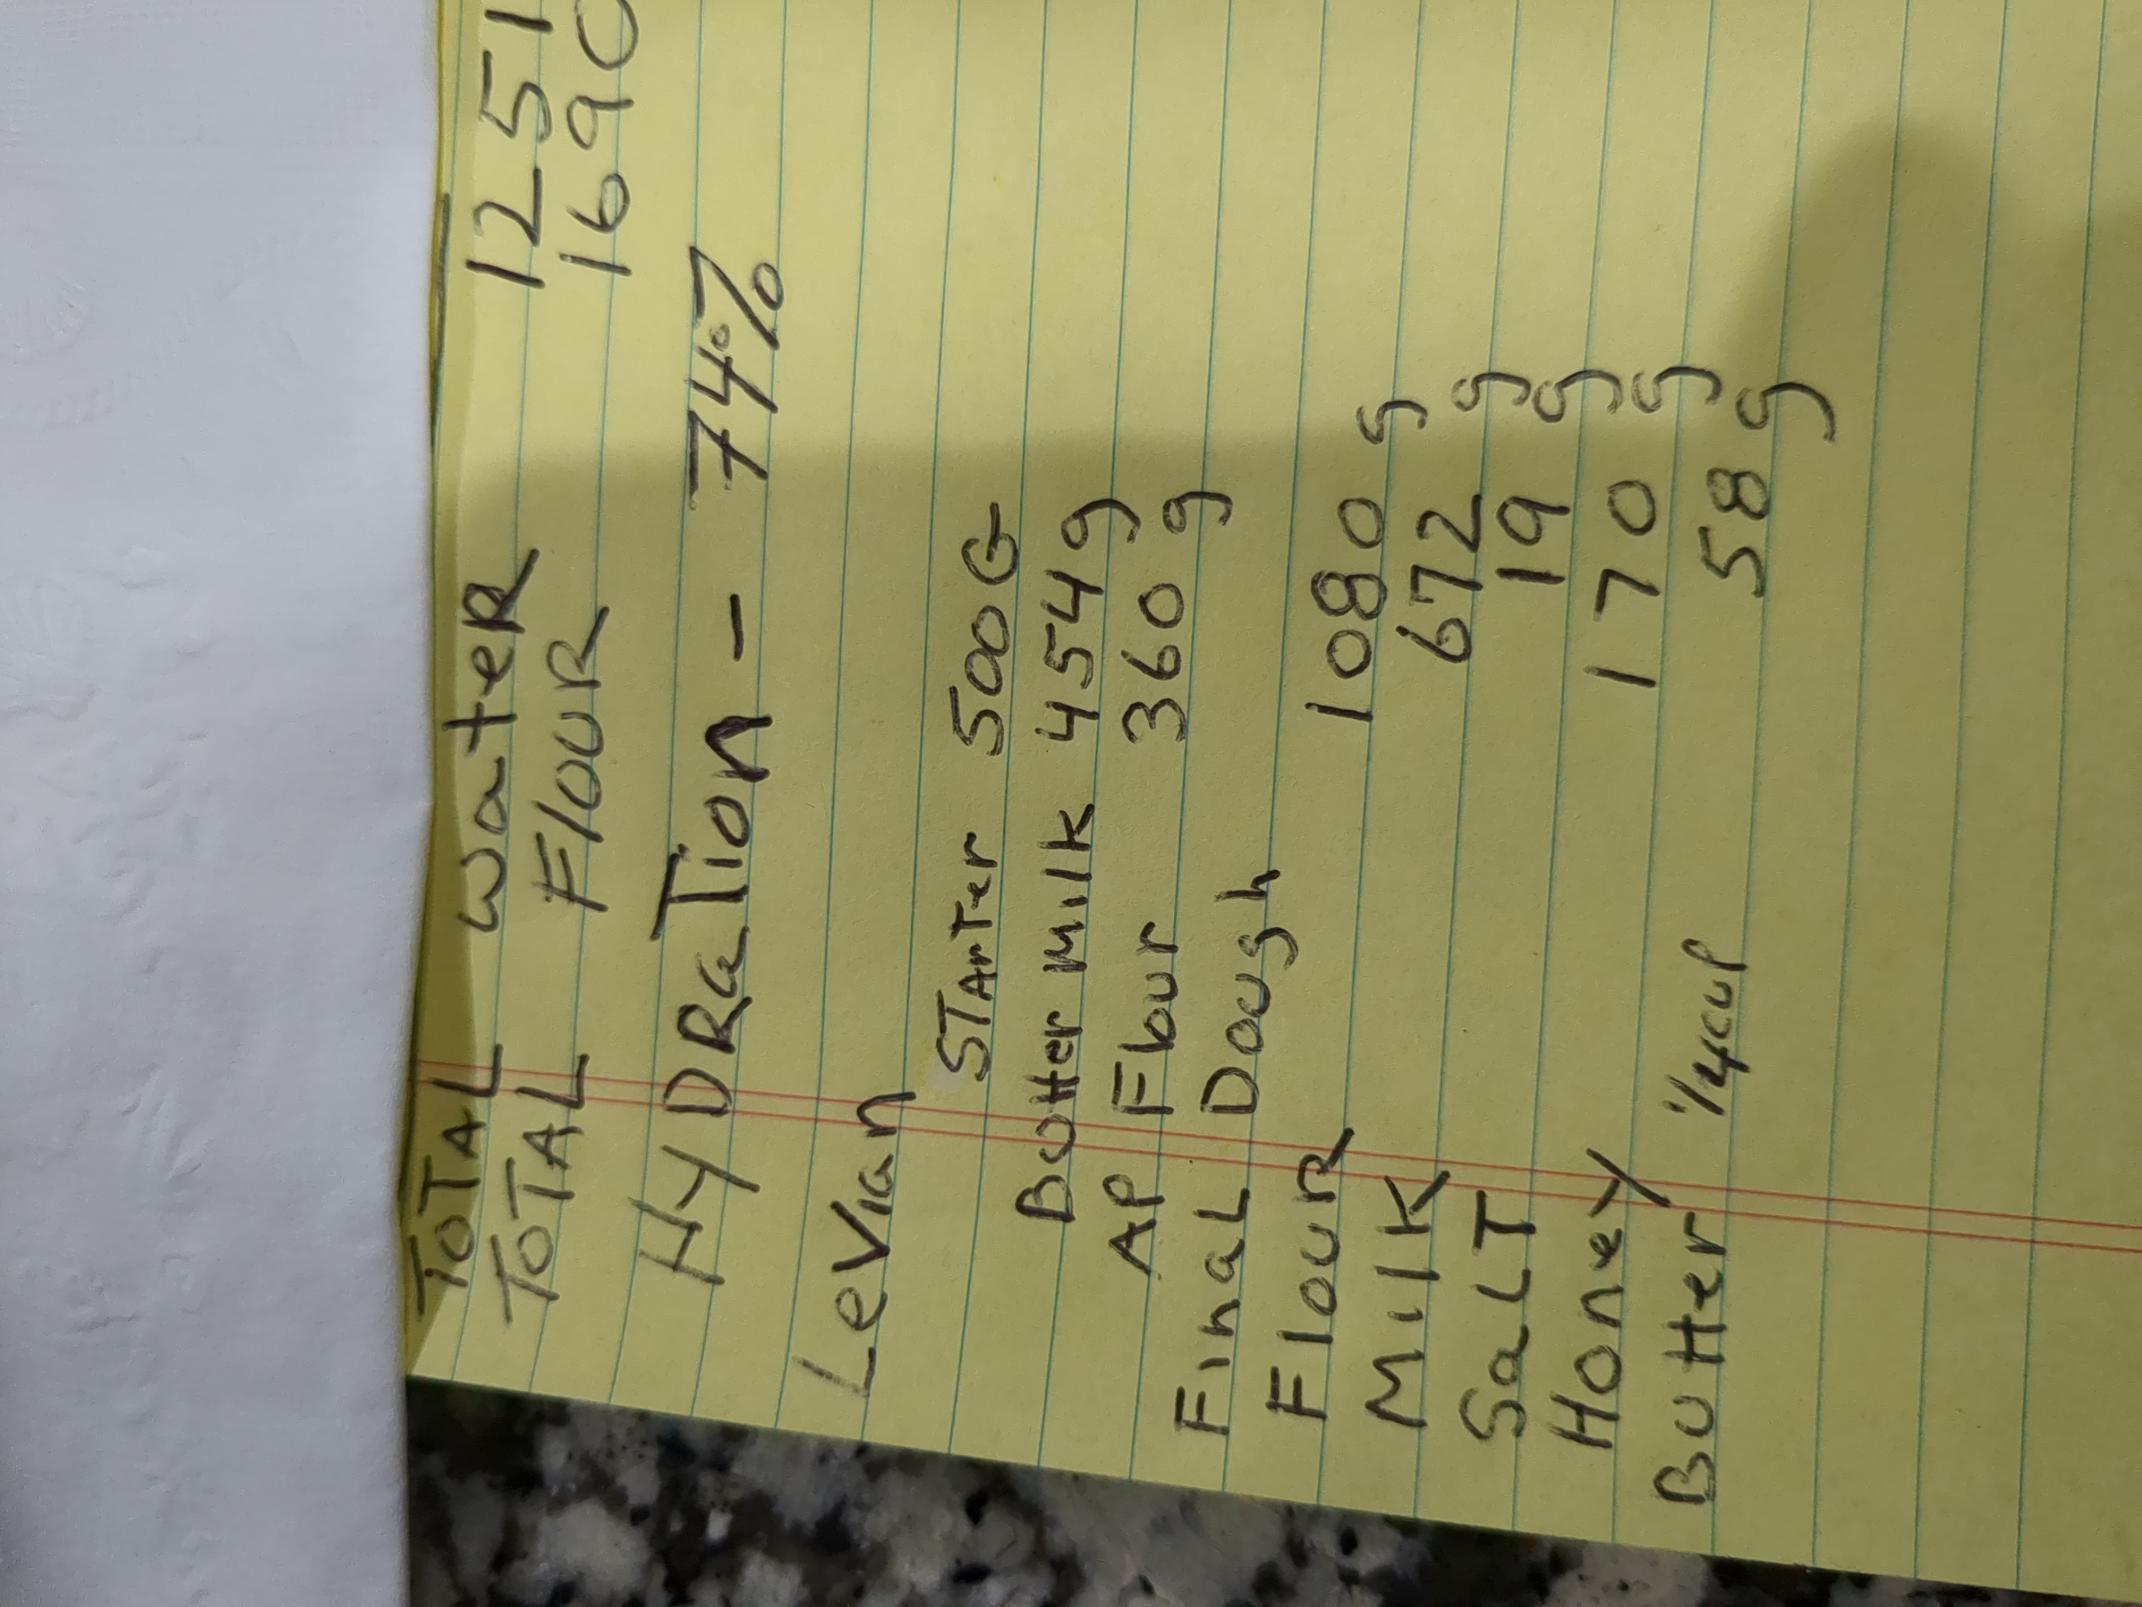 TOTAL water 1251
TOTAL Flour 1690
HyDRaTion - 74%
Levian
STarter 500G
Butter Milk 454g
AP Flour 360 g
Final Dough
Flour 1080 g
Milk 672 g
SaLT 19 g
Honey 170 g
Butter 1/4cup 58 g